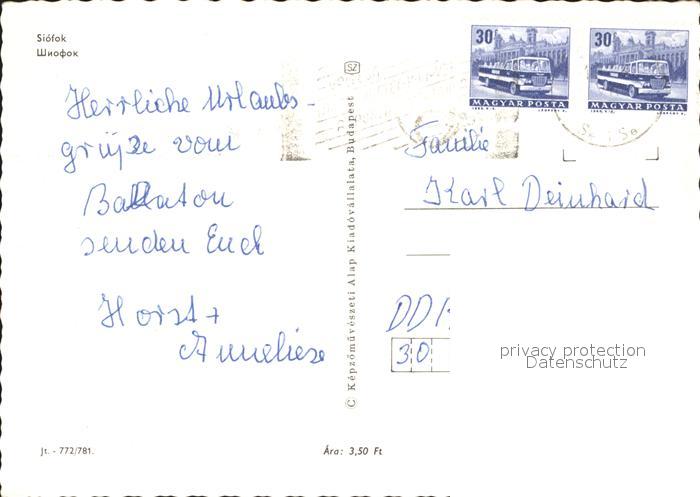 Siófok
Шиофок
Herrliche Urlaubs-
grüße vom
Balaton
senden Euch
Horst +
Anneliese
Jt. - 772/781.
Ára: 3,50 Ft
SZ
© Képzőművészeti Alap Kiadóvállalata, Budapest
30f
MAGYAR POSTA
30f
MAGYAR POSTA
Familie
Karl Deinhard
DD
30
privacy protection
Datenschutz